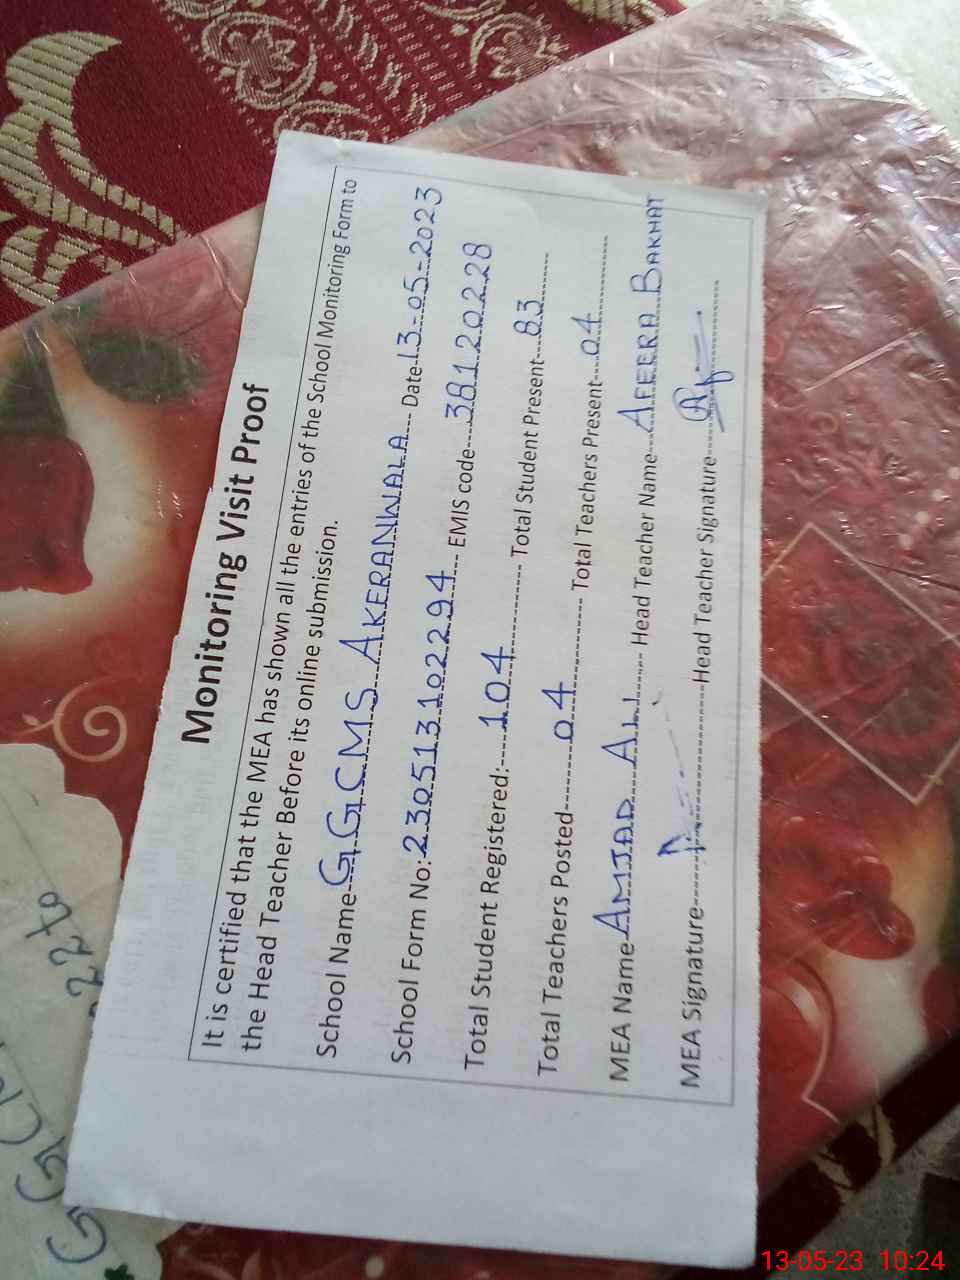 Monitoring Visit Proof
It is certified that the MEA has shown all the entries of the School Monitoring Form to
the Head Teacher Before its online submission.
School Name---GGCMS AKERANWALA---- Date-13-05-2023
School Form No:230513102294--- EMIS code----38120228
Total Student Registered:----104------------ Total Student Present---83------
Total Teachers Posted-------04------------ Total Teachers Present----04----------
MEA Name AMJAD ALI----- Head Teacher Name---AFEERA BAKHAT
MEA Signature-----------------------Head Teacher Signature---------------
GGCM
22 to
13-05-23 10:24